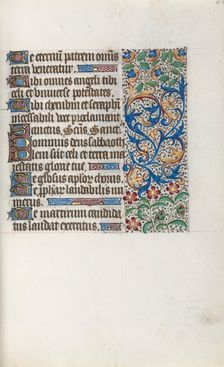 Te eternum patrem omnis
terra veneratur.
Tibi omnes angeli tibi
celi et universe potestates.
Tibi cherubin et seraphi
incessabili voce proclamant
Sanctus, Scūs, Sanct
Dominus deus sabbaoth
leni sunt celi et terra
iestatis glorie tue
Te gloriosus apl'or chorus.
Te prophetar laudabilis nu
merus.
Te martirum candida
tus laudat exercitus.